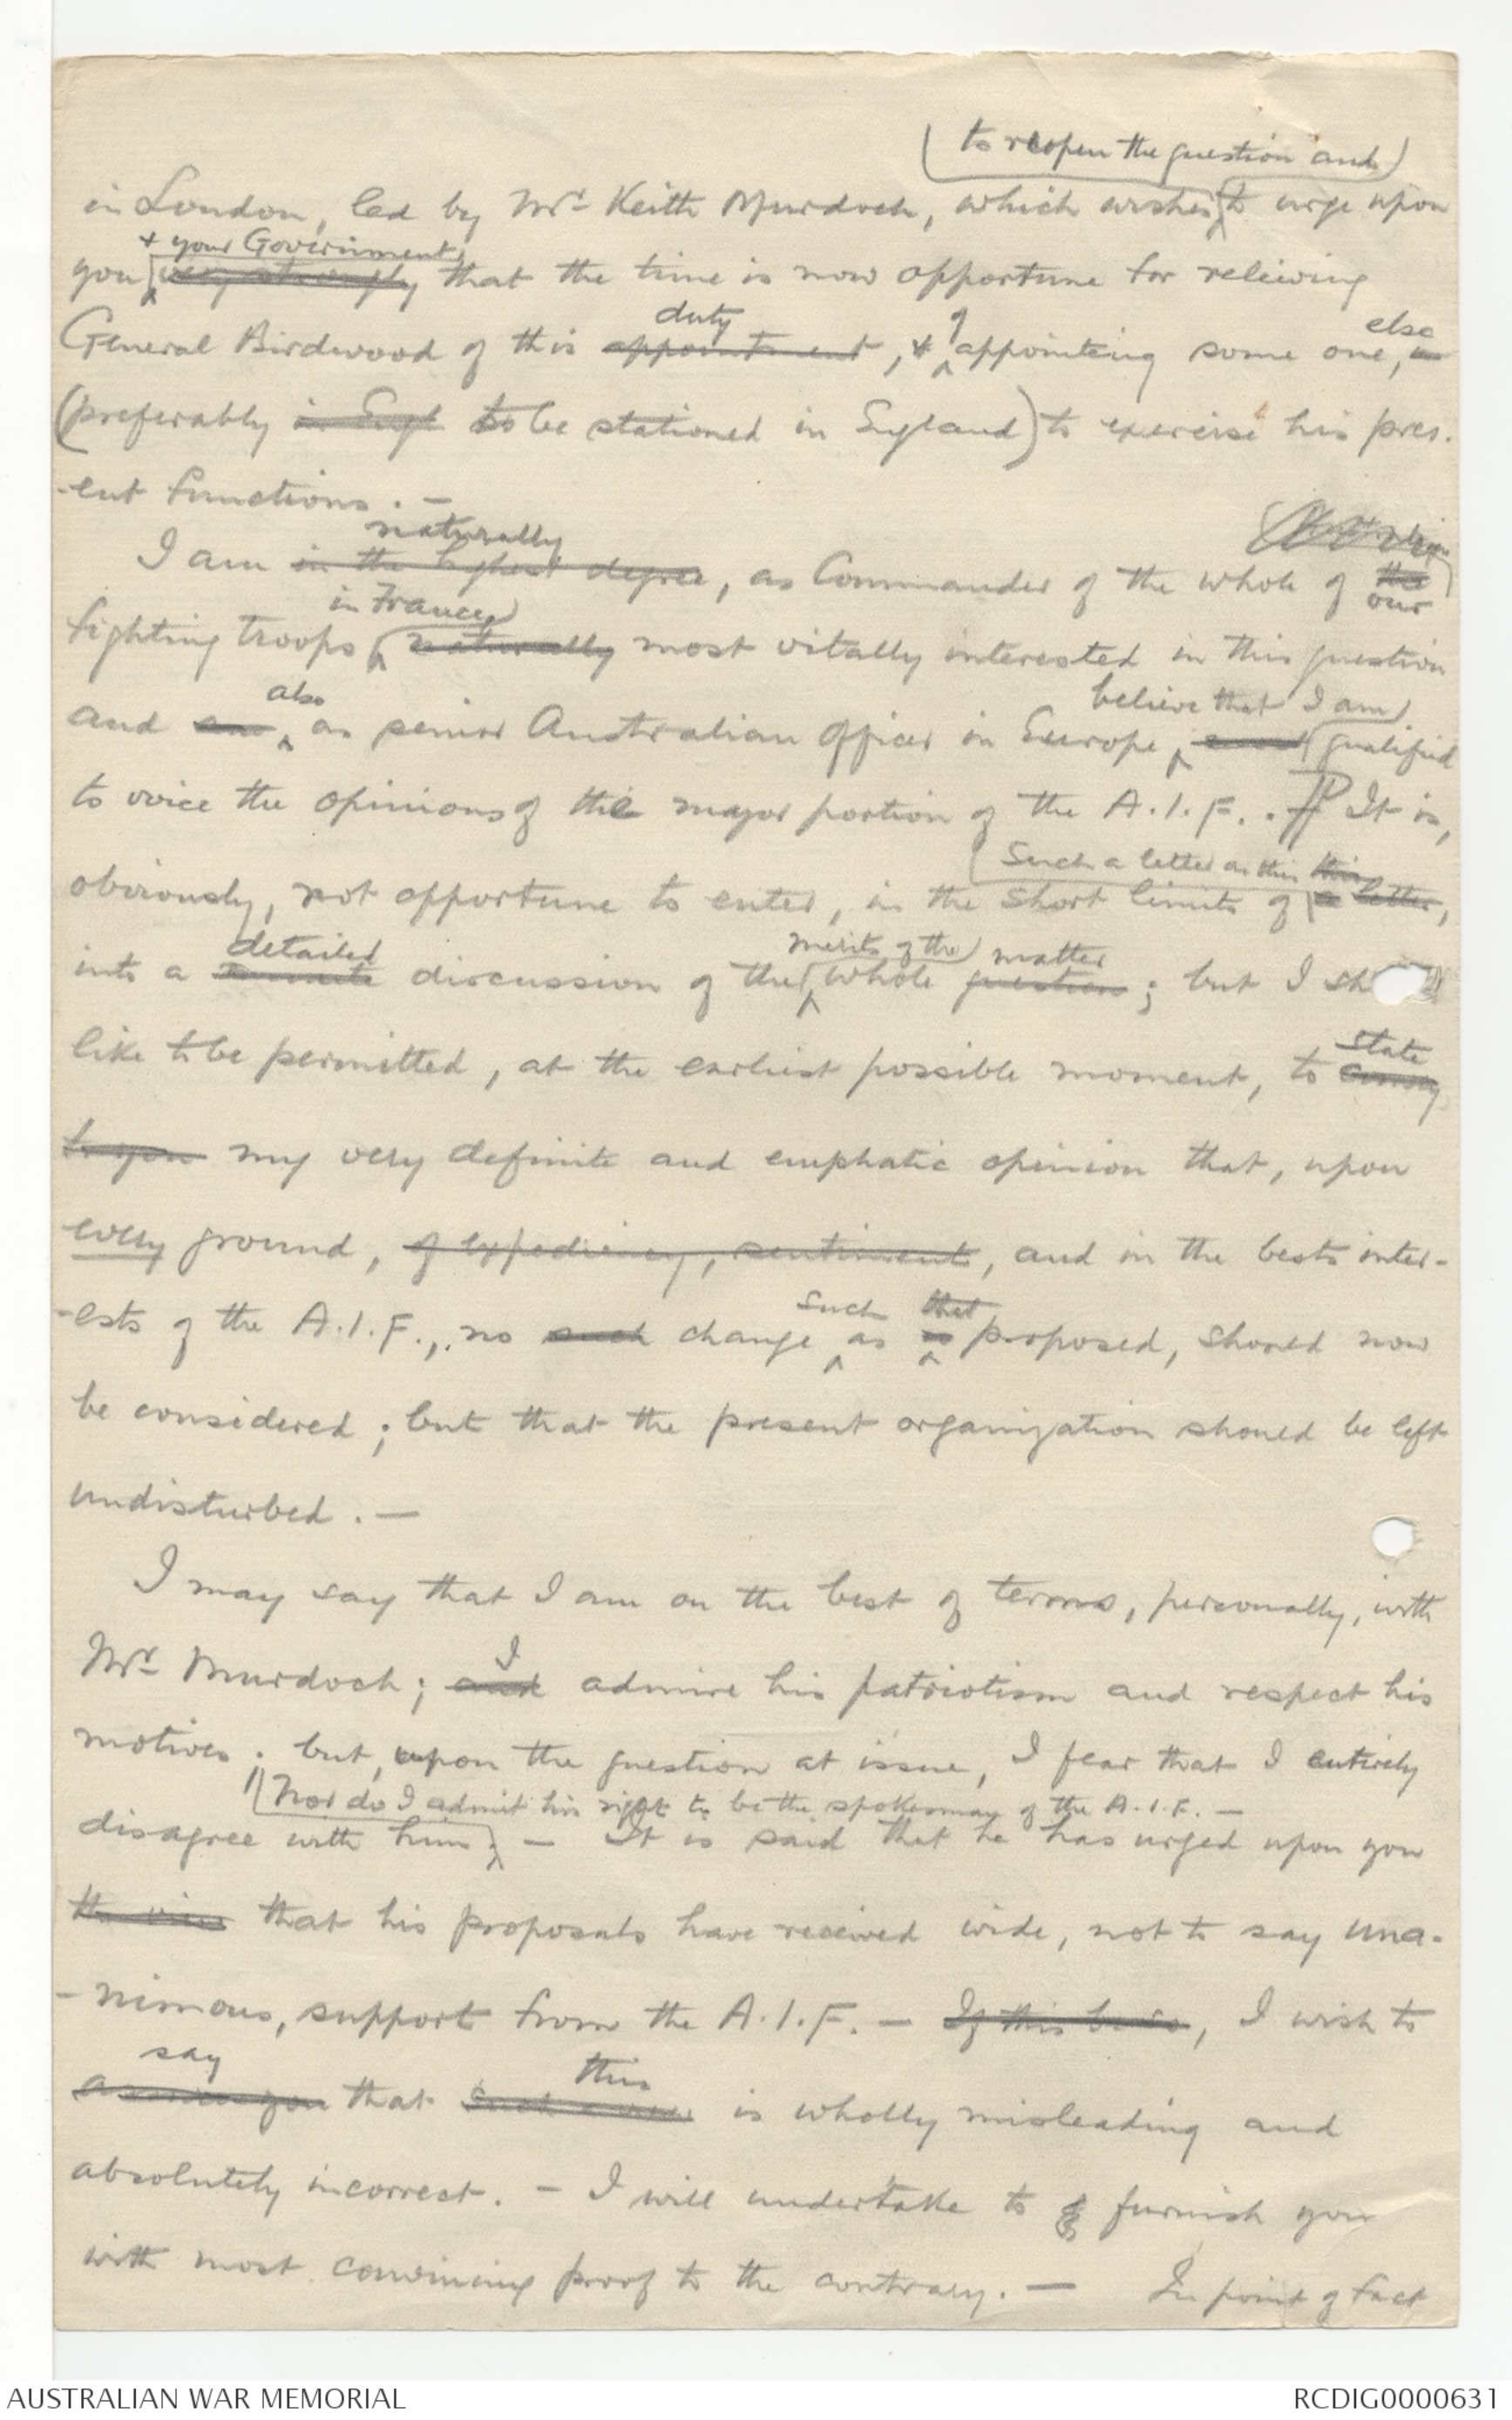 to reopen the question and
in London, led by Mr Keith Murdoch, which wishes to urge upon
& your Government
you very strongly that the time is now opportune for relieving
duty of else
General Birdwood of this appointment, & appointing some one,
(preferably in Engl to be stationed in England) to exercise his pres-
-ent functions. —
naturally
I am in the highest degree, as Commander of the whole of the
in France our
fighting troops naturally most vitally interested in this question
also believe that I am
and as senior Australian Officer in Europe, qualified
to voice the opinions of the major portion of the A.I.F.. It is,
such a letter as this this
obviously, not opportune to enter, in the short limits of a letter,
detailed merits of the matter
into a discussion of the whole question; but I sh
state
like to be permitted, at the earliest possible moment, to convey
to you my very definite and emphatic opinion that, upon
every ground, of expediency, sentiment, and in the best inter-
such that
-ests of the A.I.F., no such change as is proposed, should now
be considered; but that the present organization should be left
undisturbed. —
I may say that I am on the best of terms, personally, with
I
Mr Murdoch; and admire his patriotism and respect his
motives; but, upon the question at issue, I fear that I entirely
Nor do I admit his right to be the spokesman of the A.I.F. —
disagree with him; — It is said that he has urged upon you
the view that his proposals have received wide, not to say una-
-nimous, support from the A.I.F. — If this be so, I wish to
say this
assure you that such a view is wholly misleading and
absolutely incorrect. — I will undertake to furnish you
with most convincing proof to the contrary. — In point of fact
AUSTRALIAN WAR MEMORIAL
RCDIG0000631